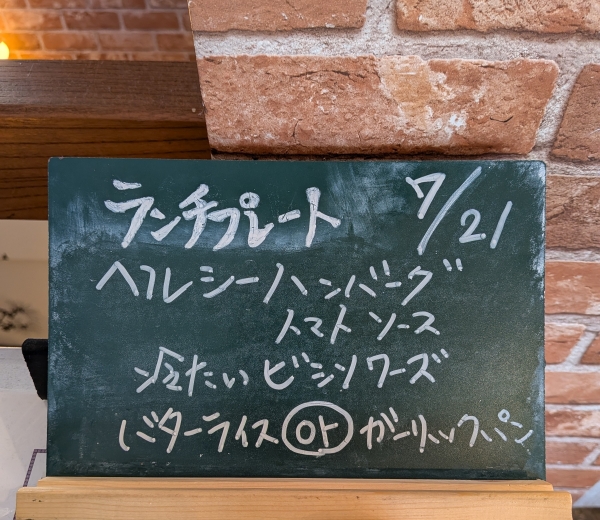 ランチプレート 7/21
ヘルシーハンバーグ
トマトソース
冷たいビシソワーズ
バターライス or ガーリックパン